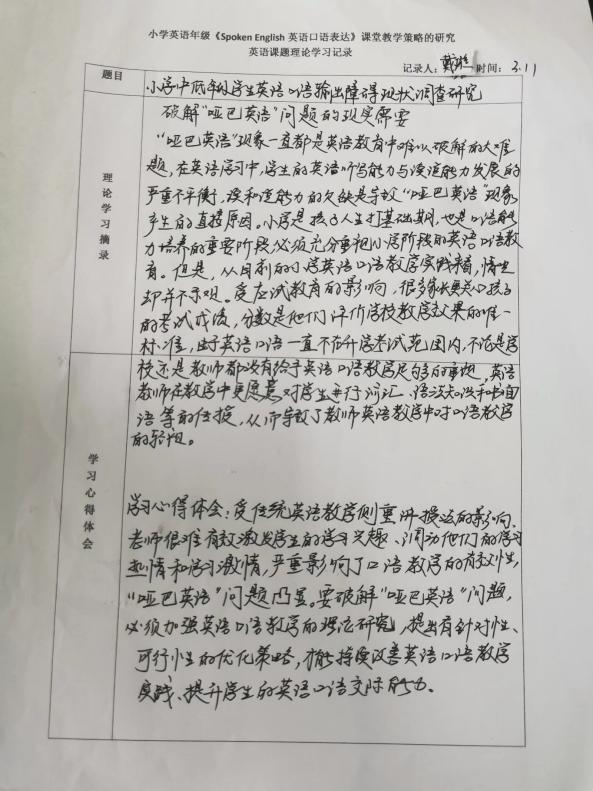 小学英语年级《Spoken English 英语口语表达》课堂教学策略的研究
英语课题理论学习记录
记录人： 时间：3.11
题目
小学中低年级学生英语口语输出障碍现状调查研究
理论学习摘录
破解“哑巴英语”问题的现实需要
“哑巴英语”现象一直都是英语教育中难以破解的大难
题，在英语学习中，学生的英语听写能力与读说能力发展的
严重不平衡，读和说能力的欠缺是导致“哑巴英语”现象
产生的直接原因。小学是孩子人生打基础期，也是口语能
力培养的重要阶段，必须充分重视小学阶段的英语口语教
育。但是，从目前的小学英语口语教学实践来看，情况
却并不乐观。受应试教育的影响，很多家长更关心孩子
的考试成绩，分数是他们评价学校教学效果的唯一
标准，由于英语口语一直不在升学考试范围内，不论是学
校还是教师都没有给予英语口语教学足够的重视，英语
教师在教学中更愿意对学生进行词汇、语法知识和书面
语等的传授，从而导致了教师英语教学中对口语教学
的轻视。
学习心得体会
学习心得体会：受传统英语教学侧重讲授法的影响，
老师很难有效激发学生的学习兴趣、调动他们的学习
热情和学习激情，严重影响了口语教学的有效性，
“哑巴英语”问题凸显。要破解“哑巴英语”问题，
必须加强英语口语教学的理论研究，提出有针对性、
可行性的优化策略，才能持续改善英语口语教学
实践、提升学生的英语口语交际能力。